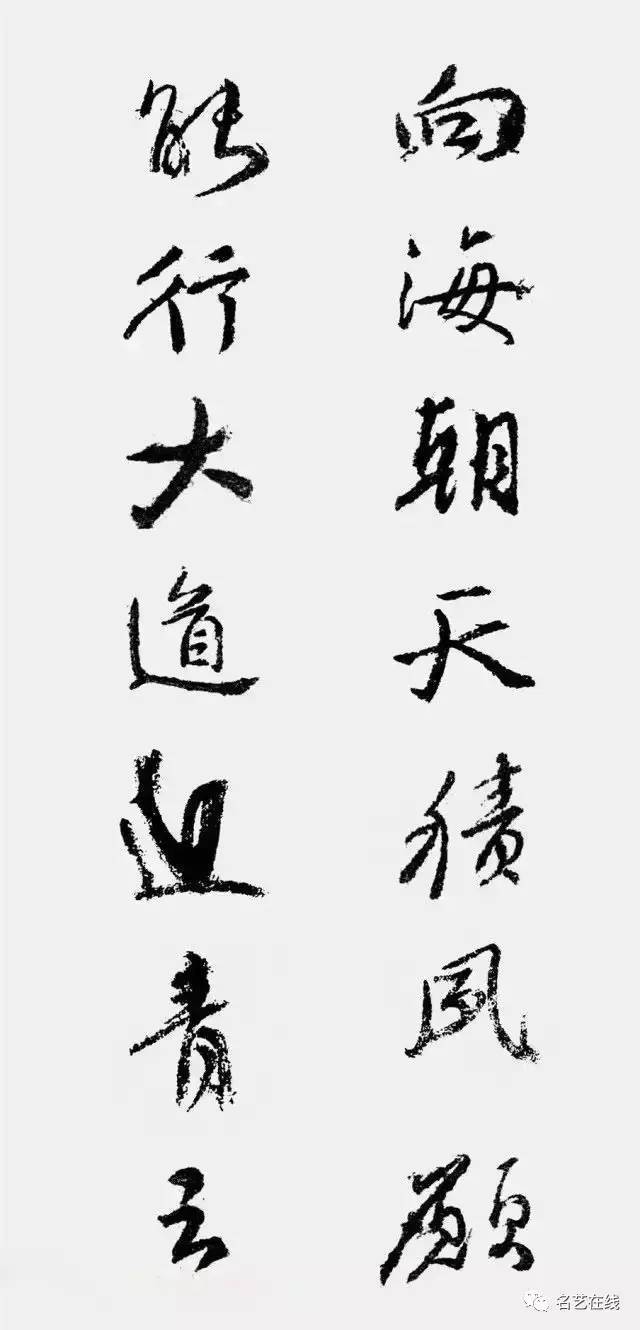 向海朝天積夙願
能行大道迎青云
名艺在线